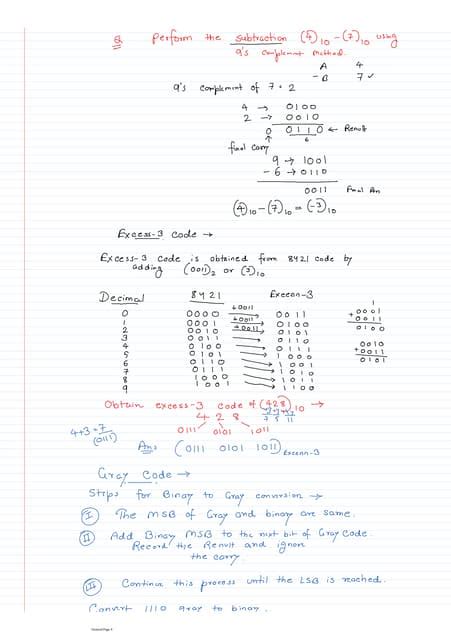 Q Perform the subtraction (4)10 - (7)10 using
9's complement method.
A 4
- B 7 ✓
9's complement of 7 = 2
4 → 0100
2 → 0010
0 0110 ← Result
6
final carry
9 → 1001
- 6 → 0110
0011 Final An
(4)10 - (7)10 = (-3)10
Excess-3 Code →
Excess-3 Code is obtained from 8421 code by
adding (0011)2 or (3)10
Decimal 8421 Excess-3
0 0000 +0011 → 0011
1 0001 +0011 → 0100
2 0010 +0011 → 0101
3 0011 → 0110
4 0100 → 0111
5 0101 → 1000
6 0110 → 1001
7 0111 → 1010
8 1000 → 1011
9 1001 → 1100
1
0001
+0011
0100
0010
+0011
0101
Obtain excess-3 code of (428)10 →
+3 +3 +3
7 5 11
4 2 8
0111 0101 1011
4+3=7
(0111)
Ans: (0111 0101 1011) Excess-3
Gray Code →
Steps for Binary to Gray conversion →
I The MSB of Gray and binary are same.
II Add Binary MSB to the next bit of Gray Code.
Record the Result and ignore
the carry.
III Continue this process until the LSB is reached.
Convert 1110 gray to binary.